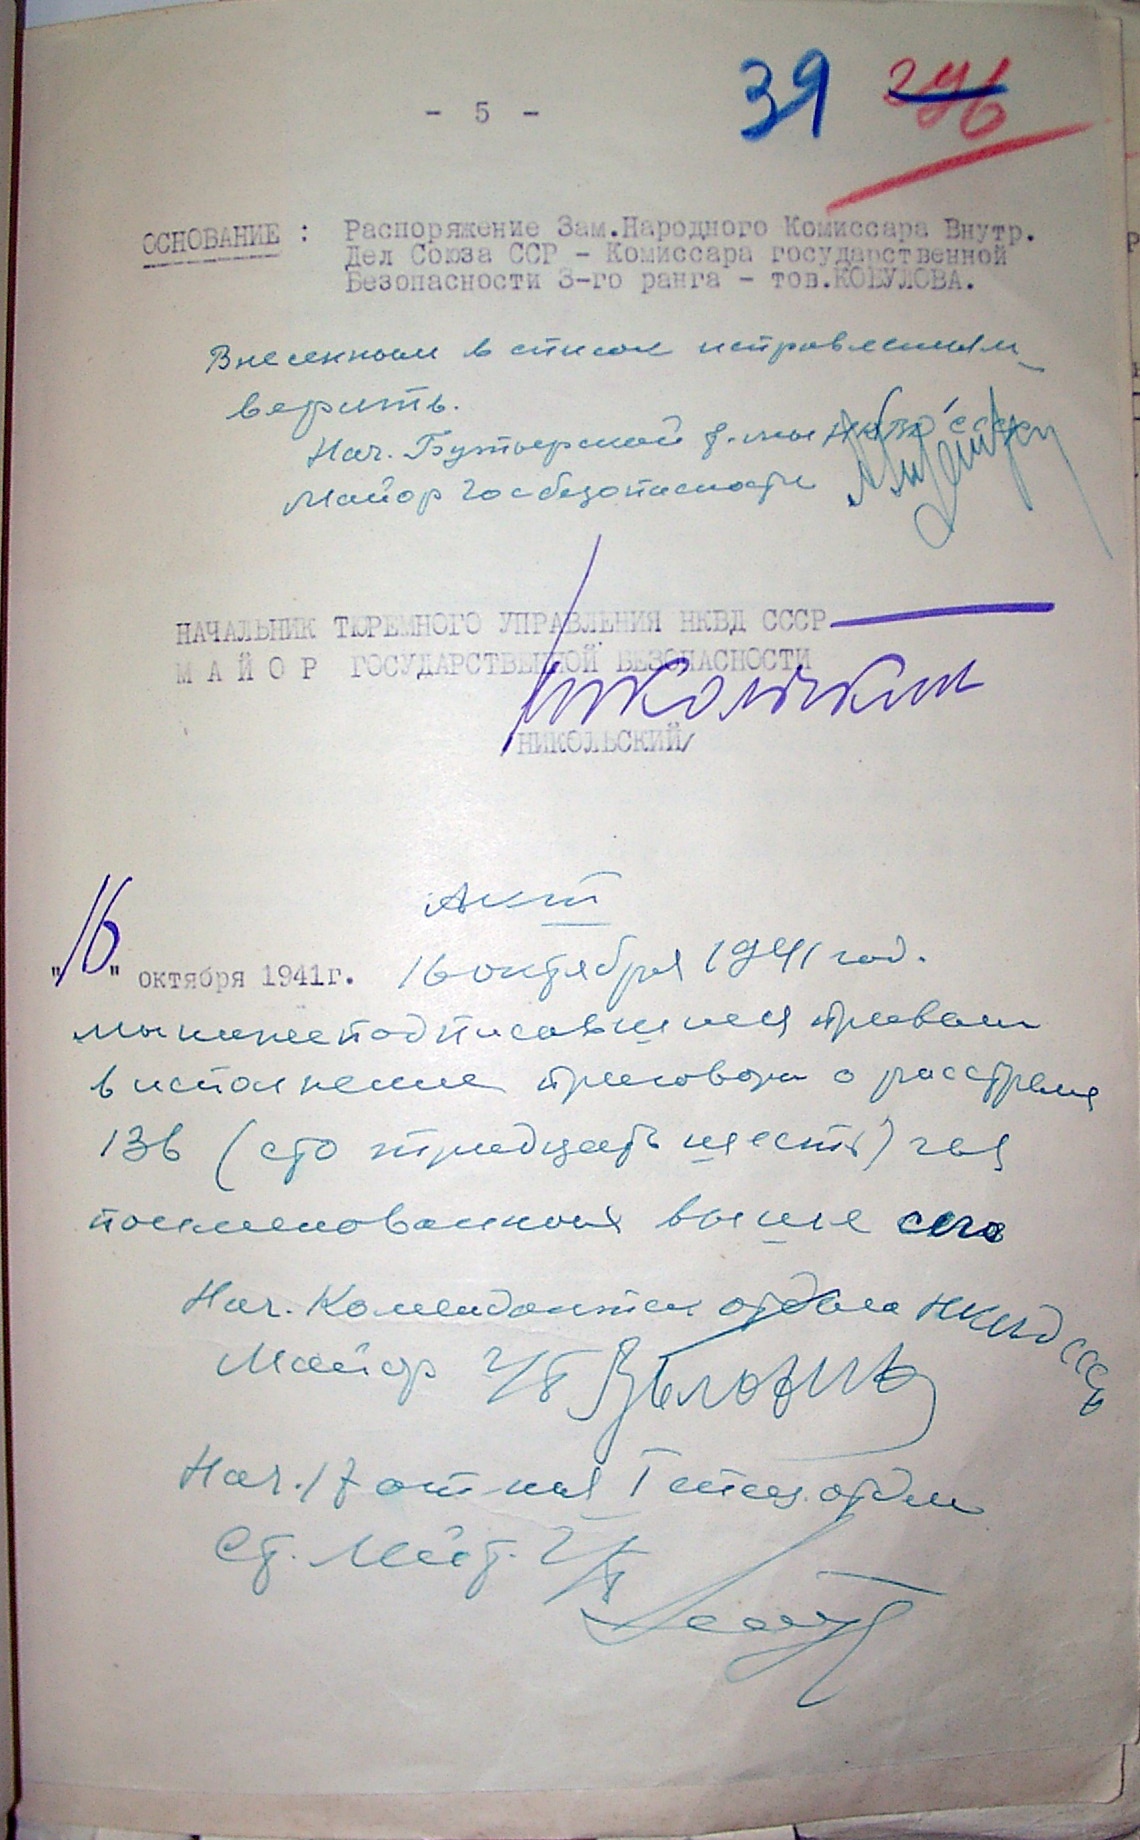 - 5 -
39 296
ОСНОВАНИЕ : Распоряжение Зам.Народного Комиссара Внутр.
Дел Союза ССР - Комиссара государственной
Безопасности 3-го ранга - тов.КОБУЛОВА.
Внесенным в список исправлениям
верить.
Нач. Бутырской тюрьмы НКВД СССР
Майор Госбезопасности
НАЧАЛЬНИК ТЮРЕМНОГО УПРАВЛЕНИЯ НКВД СССР
М А Й О Р ГОСУДАРСТВЕННОЙ БЕЗОПАСНОСТИ
Никольский
/НИКОЛЬСКИЙ/
Акт
"16" октября 1941г. 16 октября 1941 год.
мы нижеподписавшиеся привели
в исполнение приговора о расстреле
136 (сто тридцать шесть) чел
поименованных выше сего
Нач. Комендантск отдела НКВД СССР
Майор Г/Б Блохин
Нач. 17 отд-ия 1 спец. отдела
Ст. Лейт. Г/Б